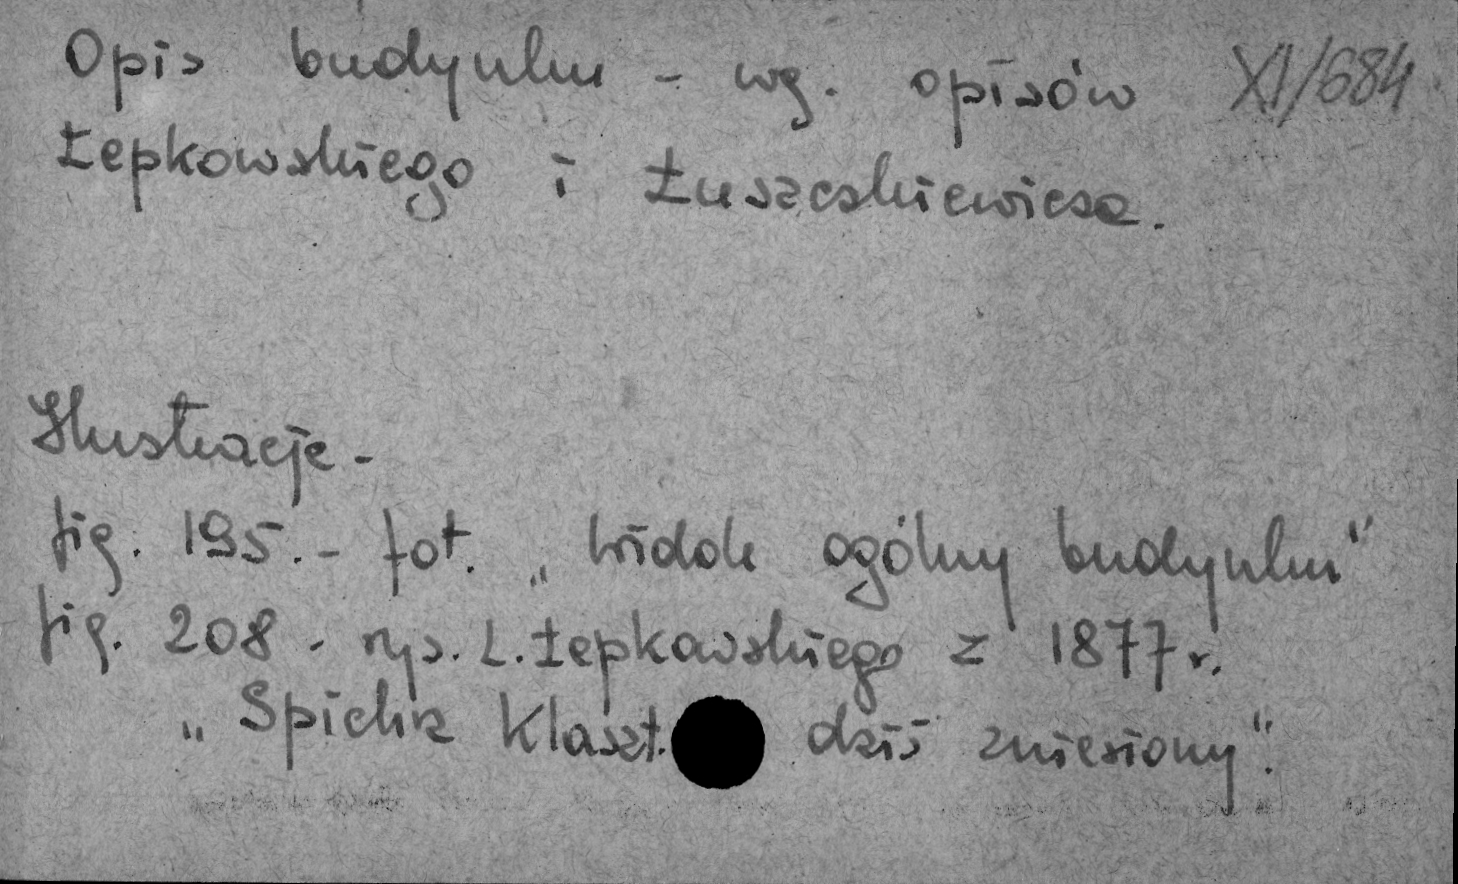 Opis budynku - wg. opisów XI/684
Łepkowskiego i Łuszczkiewicza.
Ilustracje -
fig. 195. - fot. „Widok ogólny budynku”
fig. 208 - rys. L. Łepkowskiego z 1877 r.
„Spichrz Klaszt. dziś zniesiony”.